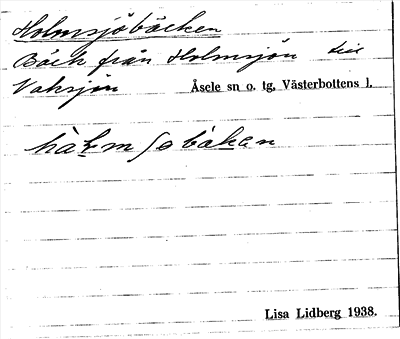 Holmsjöbäcken
Bäck från Holmsjön till
Vaksjön Åsele sn o. tg, Västerbottens l.
Lisa Lidberg 1938.